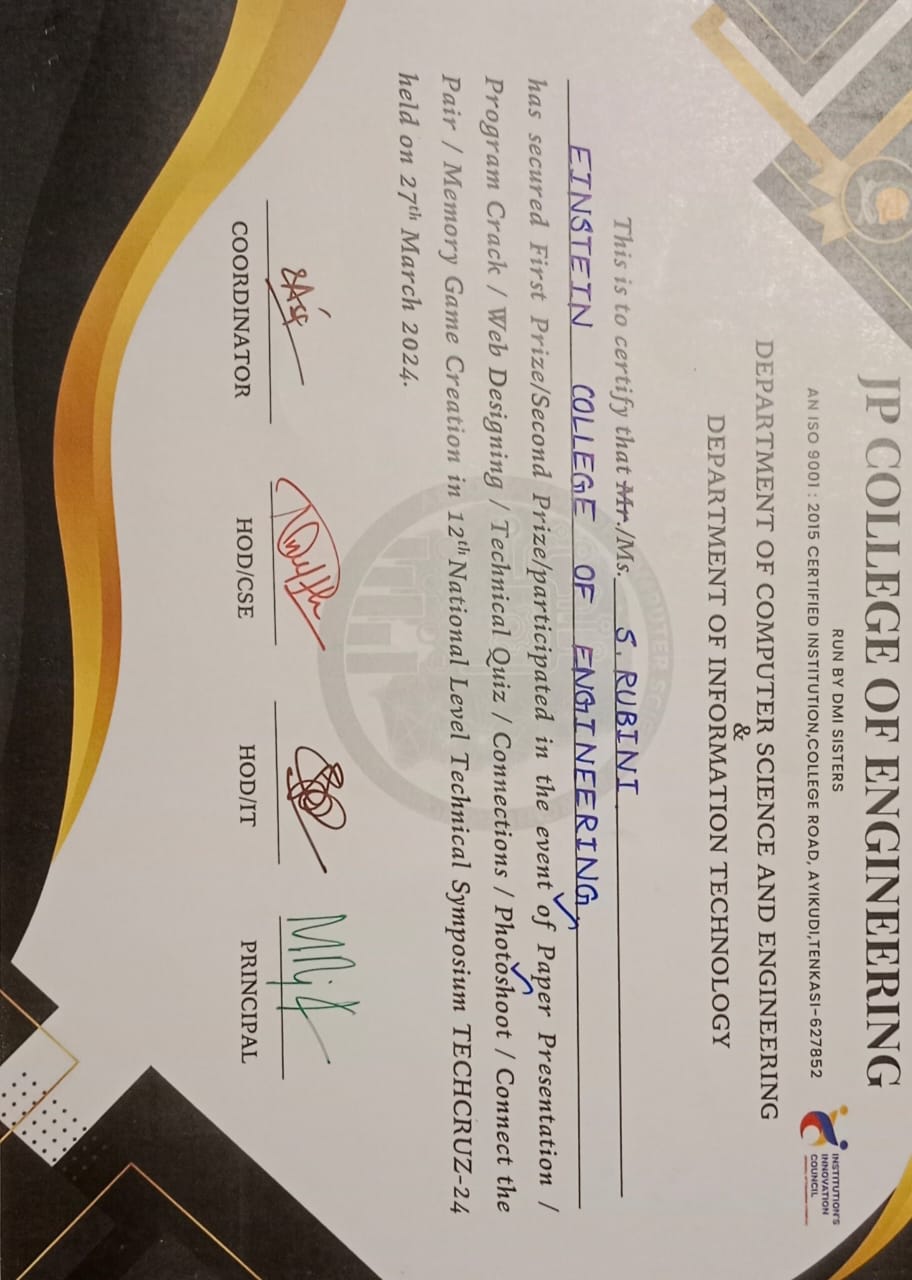 JP COLLEGE OF ENGINEERING
RUN BY DMI SISTERS
AN ISO 9001 : 2015 CERTIFIED INSTITUTION,COLLEGE ROAD, AYIKUDI,TENKASI-627852
INSTITUTION'S
INNOVATION
COUNCIL
DEPARTMENT OF COMPUTER SCIENCE AND ENGINEERING
&
DEPARTMENT OF INFORMATION TECHNOLOGY
This is to certify that Mr./Ms. S. RUBINI
EINSTEIN COLLEGE OF ENGINEERING
has secured First Prize/Second Prize/participated in the event of Paper Presentation /
Program Crack / Web Designing / Technical Quiz / Connections / Photoshoot / Connect the
Pair / Memory Game Creation in 12th National Level Technical Symposium TECHCRUZ-24
held on 27th March 2024.
COORDINATOR
HOD/CSE
HOD/IT
PRINCIPAL